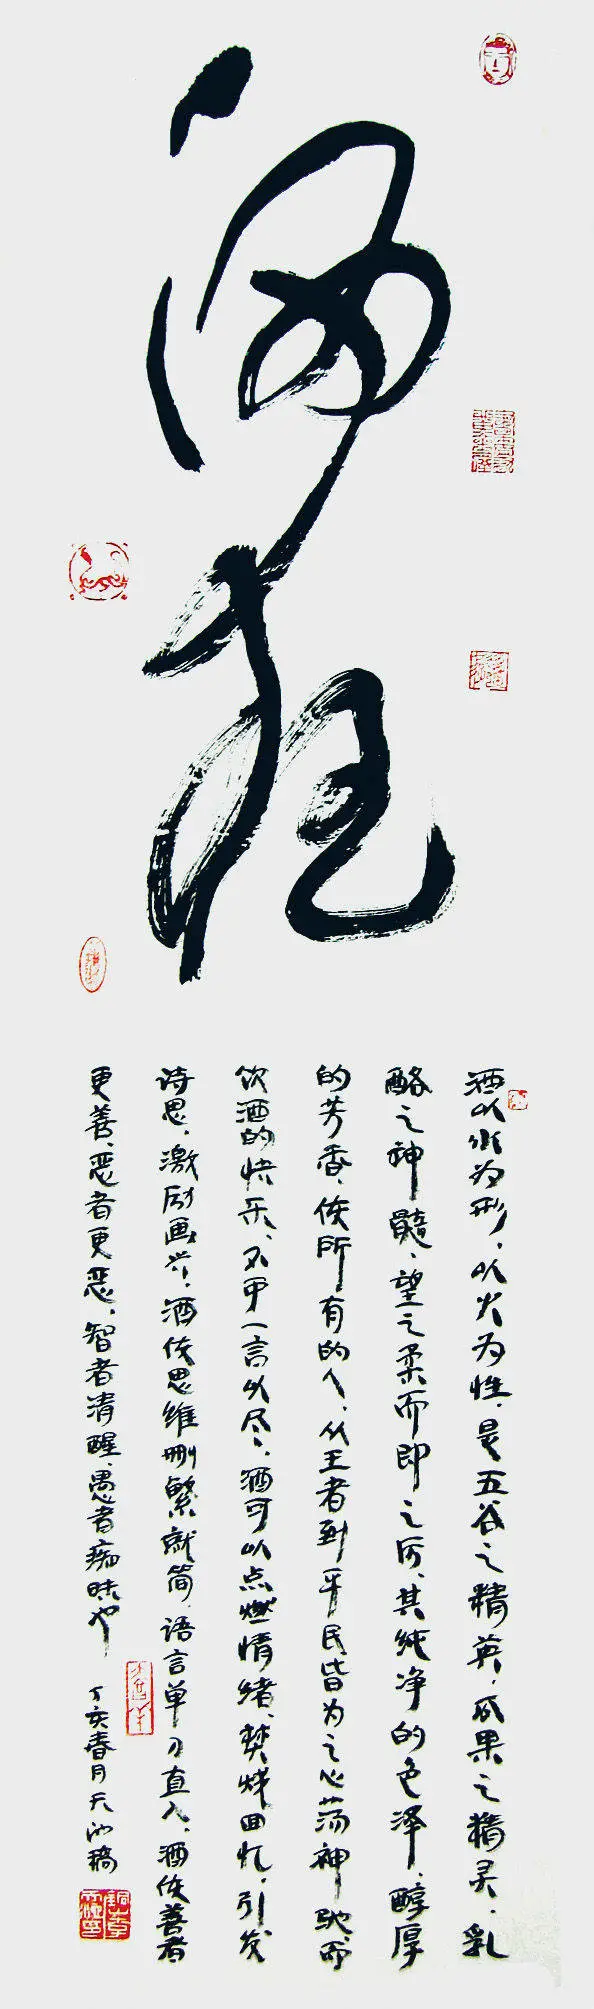 酒狂
酒以水为形，以火为性，是五谷之精英，瓜果之精灵，乳
酪之神髓，望之柔而即之厉，其纯净的色泽，醇厚
的芳香，使所有的人，从王者到平民皆为之心荡神驰，而
饮酒的快乐，不可一言以尽，酒可以点燃情绪，焚烧回忆，引发
诗思，激励画兴，酒使思维删繁就简，语言单刀直入，酒使善者
更善，恶者更恶，智者清醒，愚者痴昧也
丁亥春月天池稿